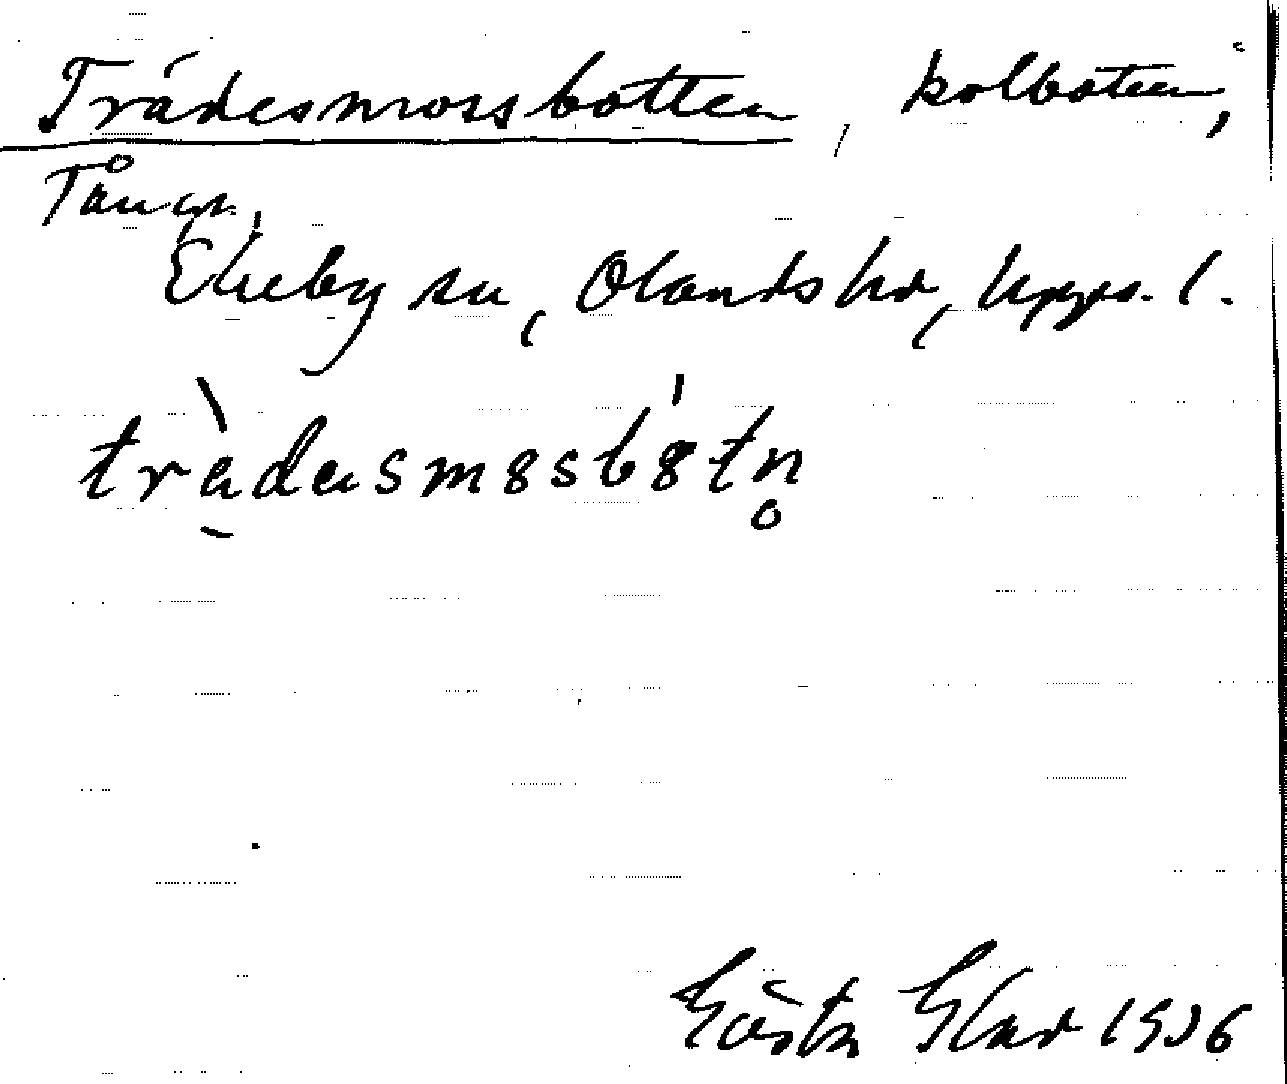 Trädesmossbotten, kolbotten,
Tången,
Ekeby sn, Olands hd, Upps. l.
trädäsmɜsbɜ́tn̥
Gösta Glad 1936